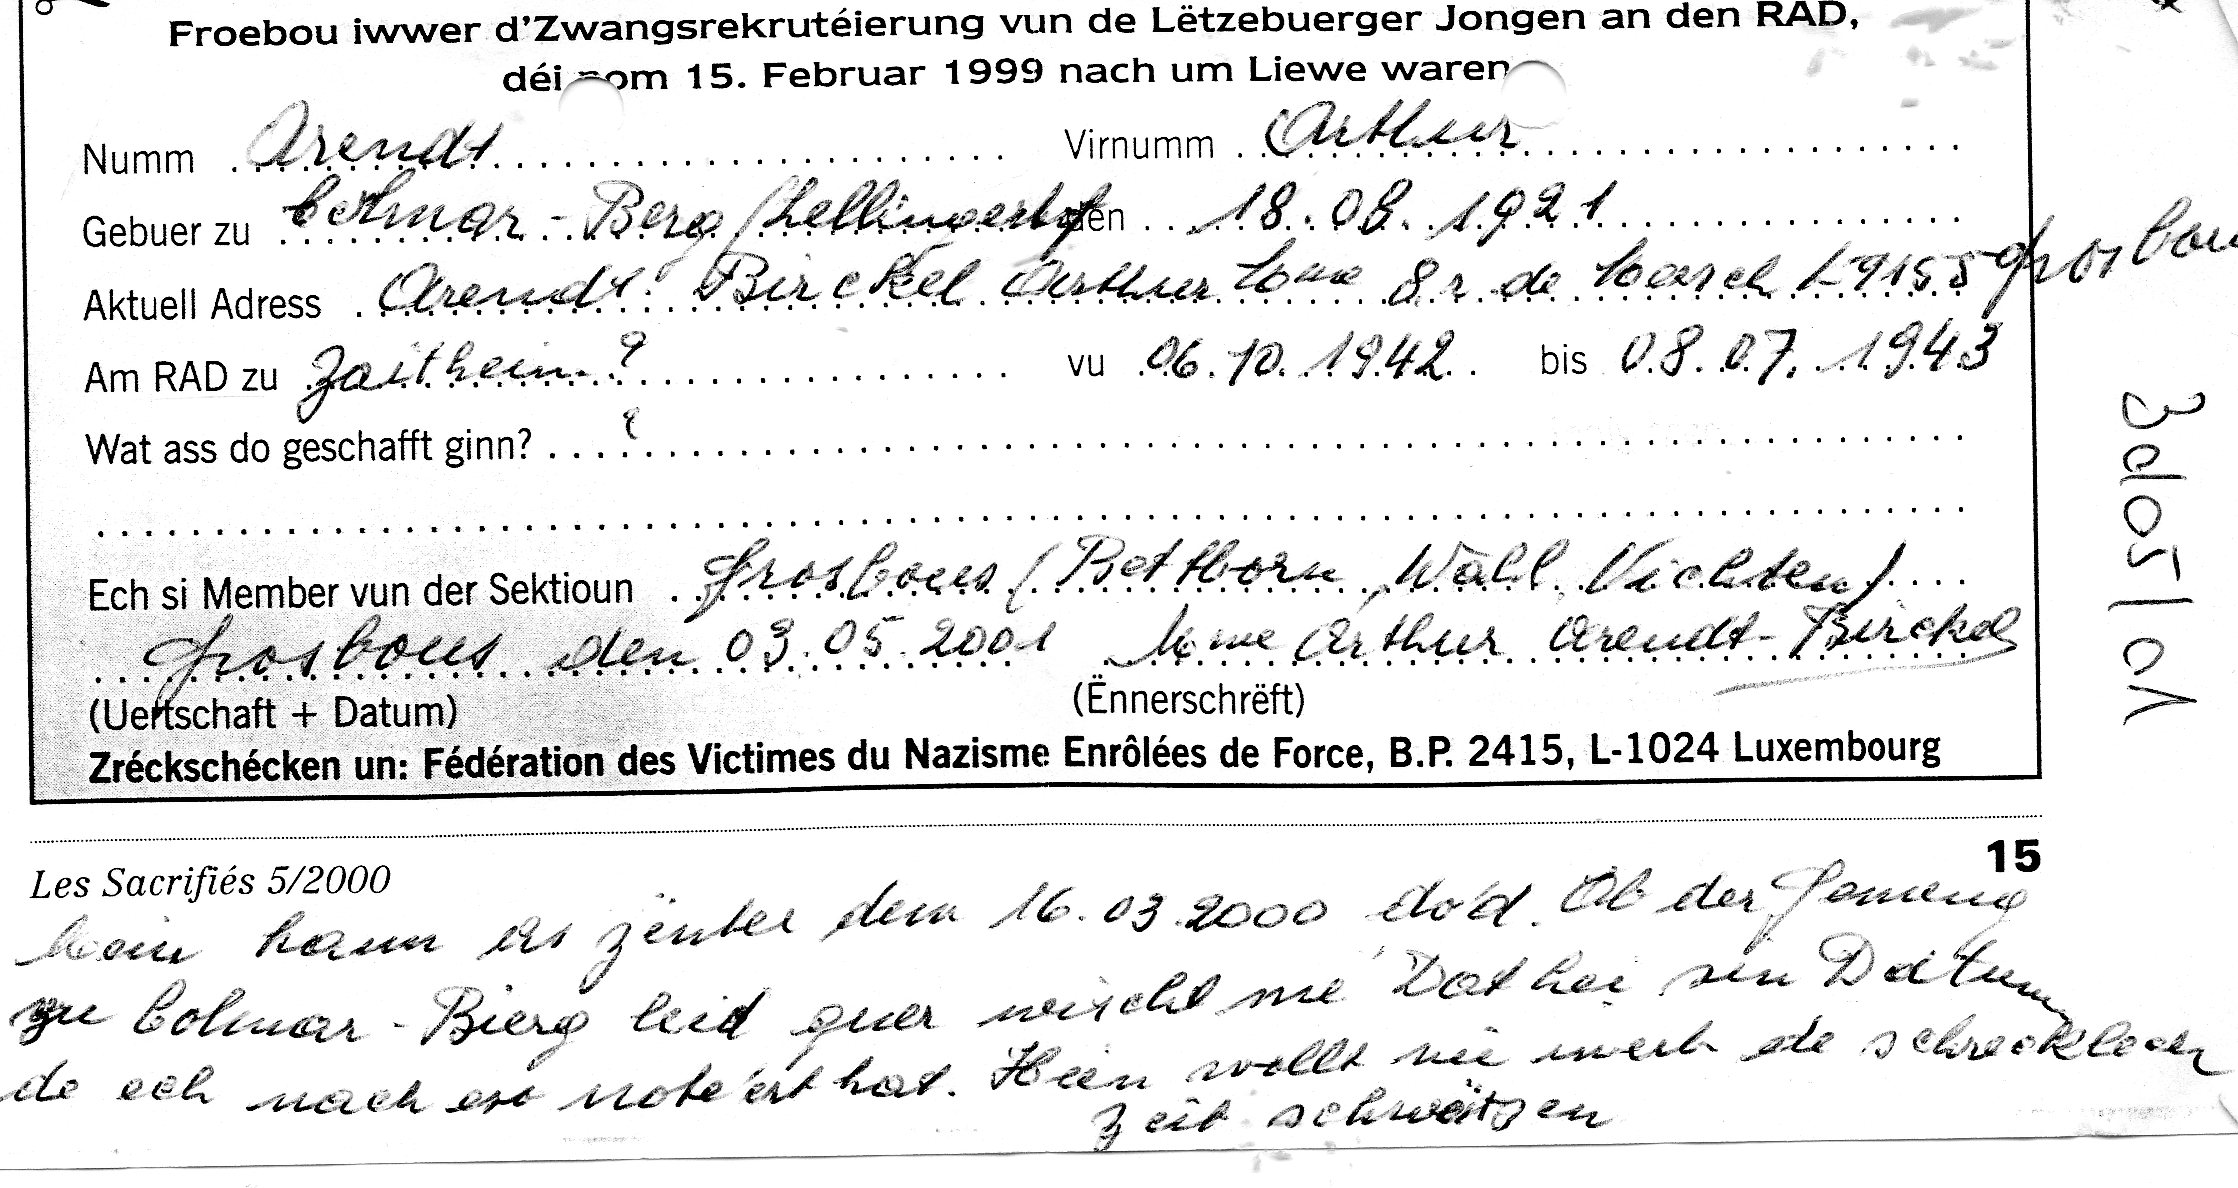 Froebou iwwer d'Zwangsrekrutéierung vun de Lëtzebuerger Jongen an den RAD,
déi nom 15. Februar 1999 nach um Liewe waren
Numm Arendt Virnumm Arthur
Gebuer zu Colmar-Berg (Lellingerhof den 18.08.1921
Aktuell Adress Arendt-Birckel Arthur Mme 8 r. de Mersch L-9155 Grosbous
Am RAD zu Zeithein ? vu 06.10.1942 bis 08.07.1943
Wat ass do geschafft ginn? ?
Ech si Member vun der Sektioun Grosbous (Bettborn, Wahl, Vichten)
Grosbous den 03.05.2001 Mme Arthur Arendt-Birckel
(Uertschaft + Datum) (Ënnerschrëft)
Zréckschécken un: Fédération des Victimes du Nazisme Enrôlées de Force, B.P. 2415, L-1024 Luxembourg
Les Sacrifiés 5/2000 15
Mein Mann as zënter dem 16.03.2000 do'd. Ob der Gemeng
zu Colmar-Bierg leid guer neischt me' Dat hei sin Datum
de ech nach ex note'ert hat. Hien wollt nie iwert de schrecklech
Zeit schwätzen
3d05/01